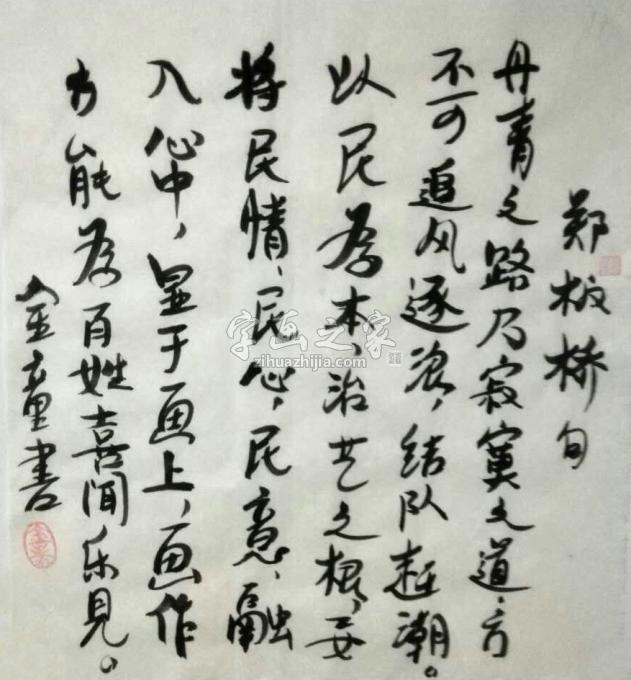 郑板桥句
丹青之路乃寂寞之道、方
不可追风逐浪，结队赶潮。
以民為本、治艺之根，要
将民情、民心、民意、融
入心中，显于画上，画作
方能為百姓喜闻乐見。
金童書
字画之家
zihuazhijia.com